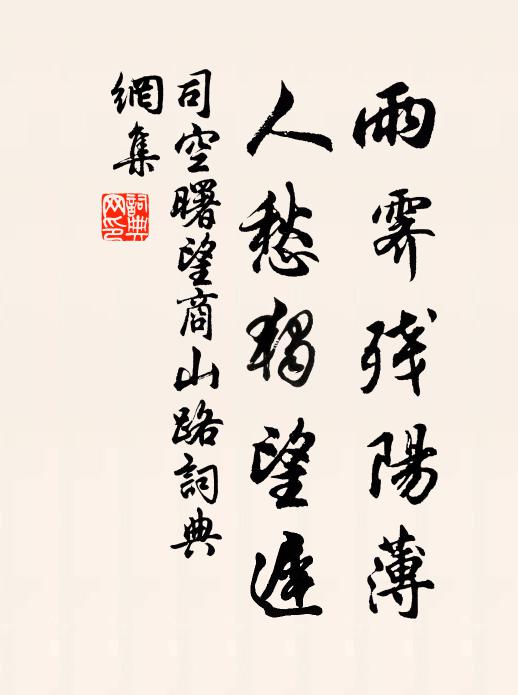 雨霁残陽薄
人愁独望遅
司空曙望商山路詞典
網集
詞典
网印